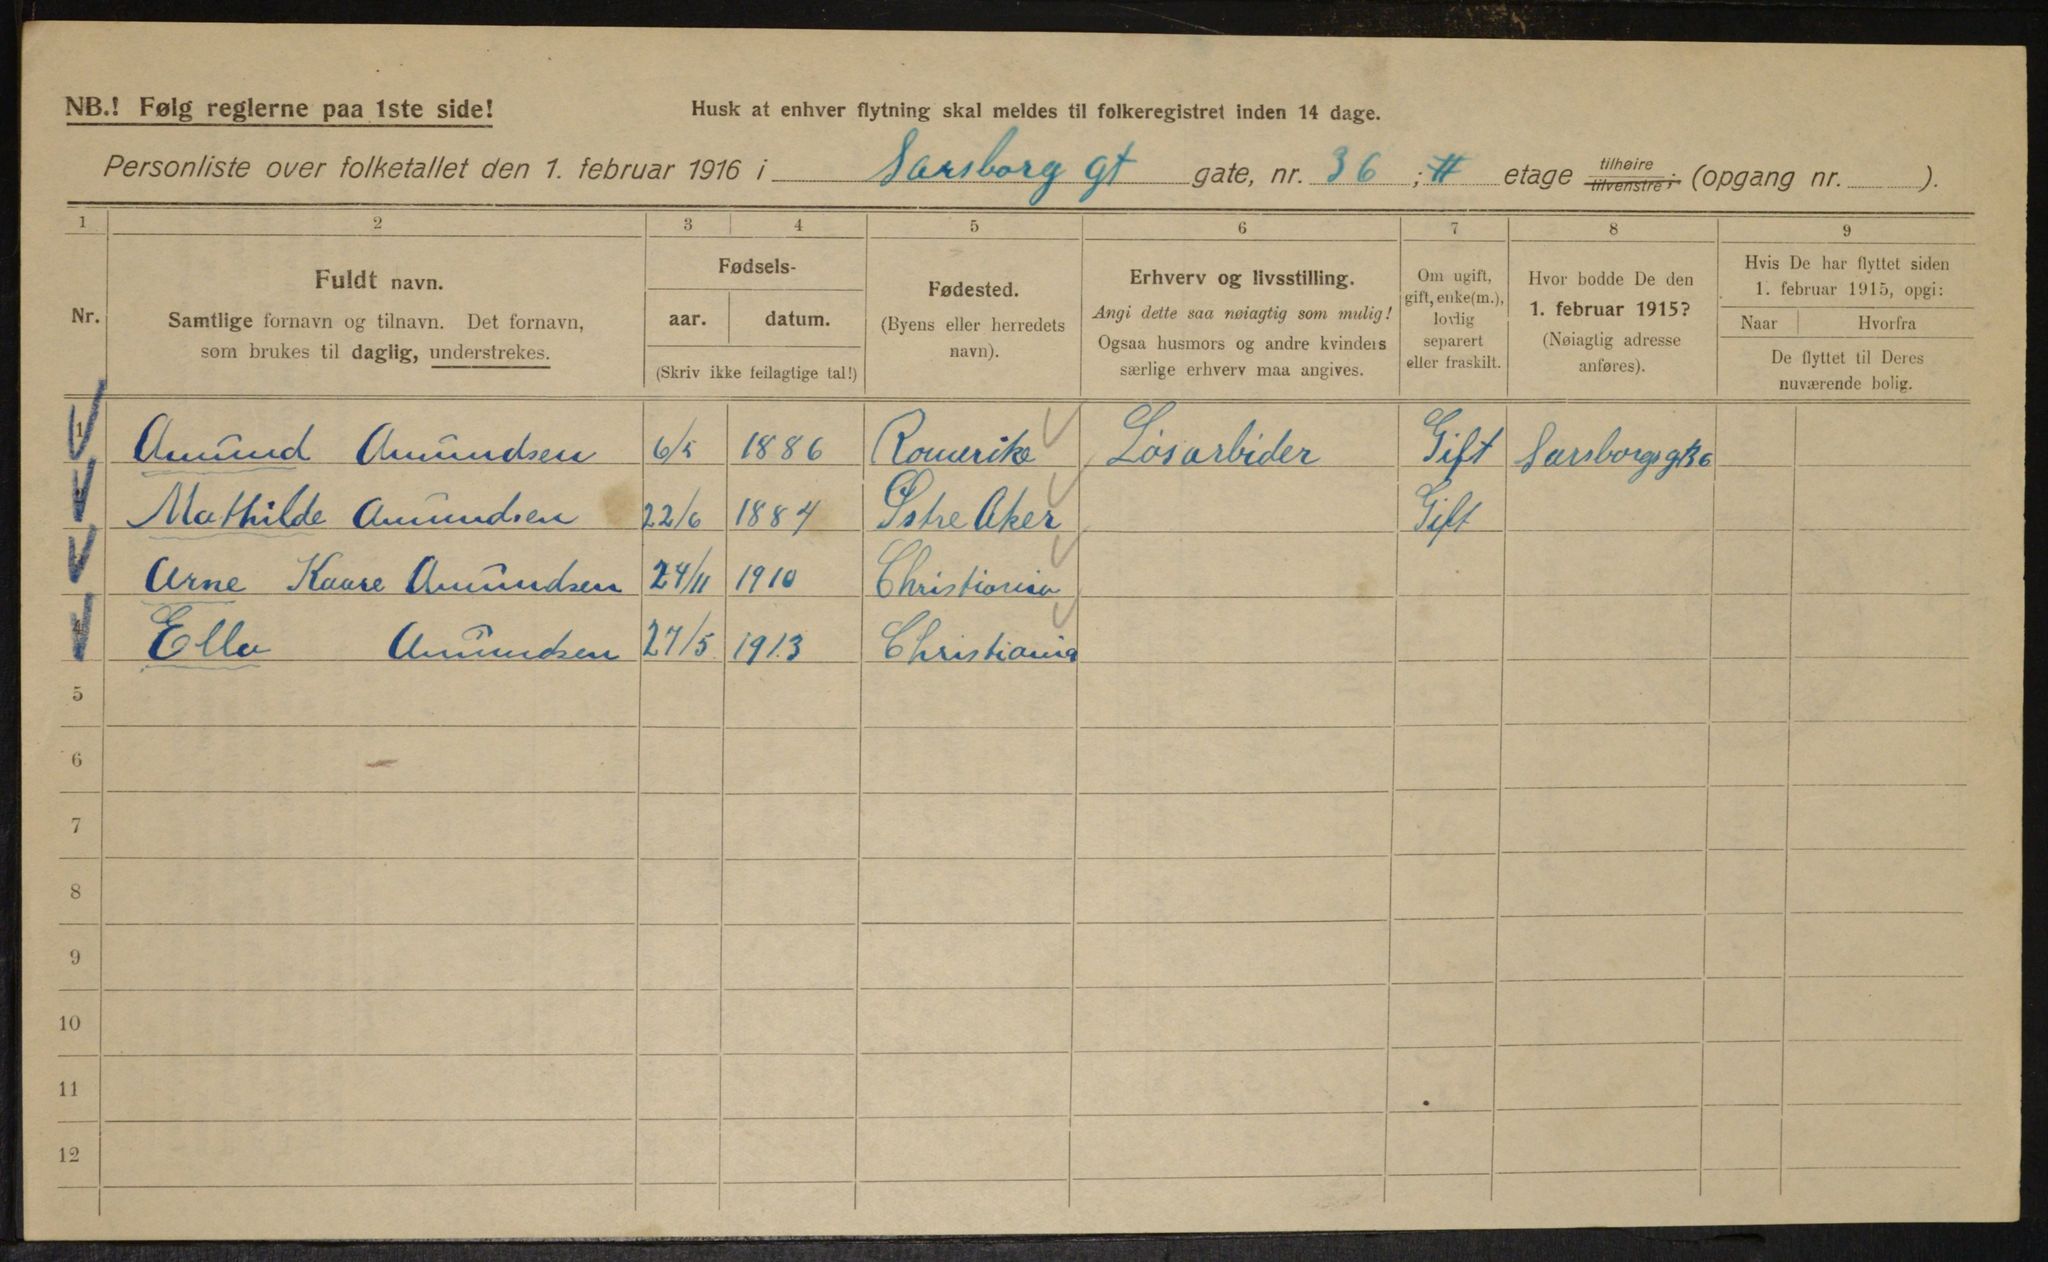 NB.! Følg reglerne paa 1ste side!
Husk at enhver flytning skal meldes til folkeregistret inden 14 dage.
Personliste over folketallet den 1. februar 1916 i Sarsborg gt gate, nr. 36 ; II etage tilhøire tilvenstre ; (opgang nr. ).
1 2 3 4 5 6 7 8 9
Nr.
Fuldt navn.
Samtlige fornavn og tilnavn. Det fornavn,
som brukes til daglig, understrekes.
Fødsels-
aar. datum.
(Skriv ikke feilagtige tal!)
Fødested.
(Byens eller herredets
navn).
Erhverv og livsstilling.
Angi dette saa nøiagtig som mulig!
Ogsaa husmors og andre kvinders
særlige erhverv maa angives.
Om ugift,
gift, enke(m.),
lovlig
separert
eller fraskilt.
Hvor bodde De den
1. februar 1915?
(Nøiagtig adresse
anføres).
Hvis De har flyttet siden
1. februar 1915, opgi:
Naar Hvorfra
De flyttet til Deres
nuværende bolig.
1 Amund Amundsen 6/5 1886 Romerike Løsarbider Gift Sarsborgsgt 36
Mathilde Amundsen 22/6 1884 Østre Aker Gift
Arne Kaare Amundsen 24/11 1910 Christiania
4 Ella Amundsen 27/5 1913 Christiania
5
6
7
8
9
10
11
12